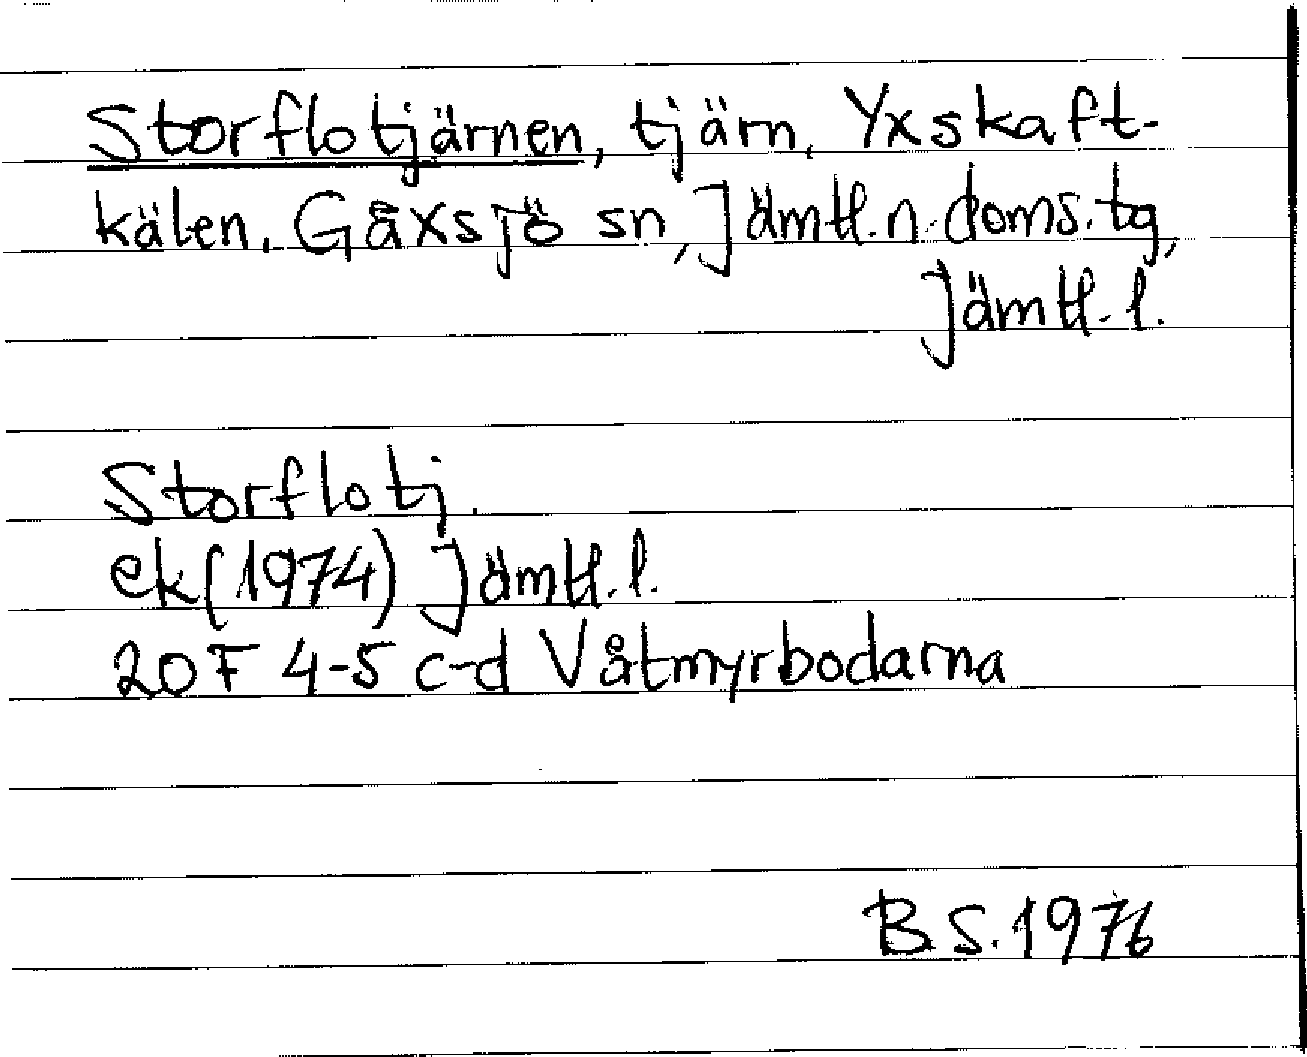 Storflotjärnen, tjärn, Yxskaft-
kälen, Gåxsjö sn, Jämtl.n.doms.tg,
Jämtl.l.
Storflotj.
ek(1974) Jämtl.l.
20F 4-5 c-d Våtmyrbodarna
B.S.1976